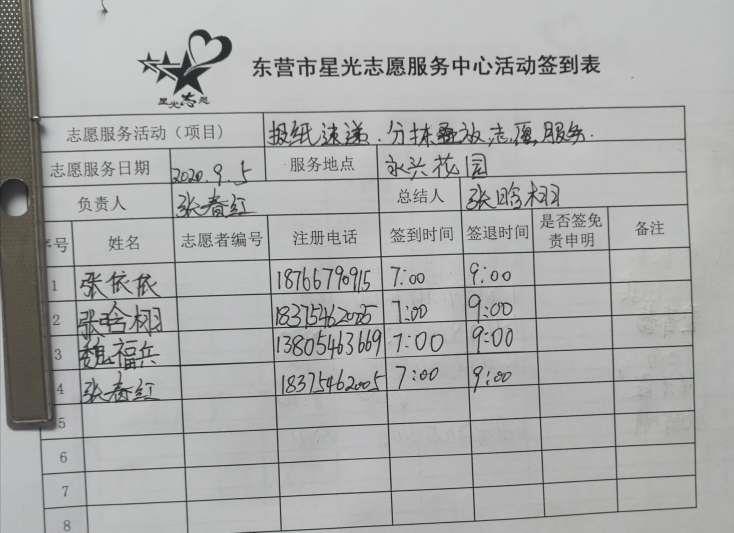 星光志愿
东营市星光志愿服务中心活动签到表
志愿服务活动（项目） 报纸速递、分拣叠放志愿服务.
志愿服务日期 2020.9.5 服务地点 永兴花园
负责人 张春红 总结人 张晗栩
序号 姓名 志愿者编号 注册电话 签到时间 签退时间 是否签免责申明 备注
1 张依依 18766790915 7:00 9:00
2 张晗栩 18375462005 7:00 9:00
3 魏福兵 13805463669 7:00 9:00
4 张春红 18375462005 7:00 9:00
5
6
7
8